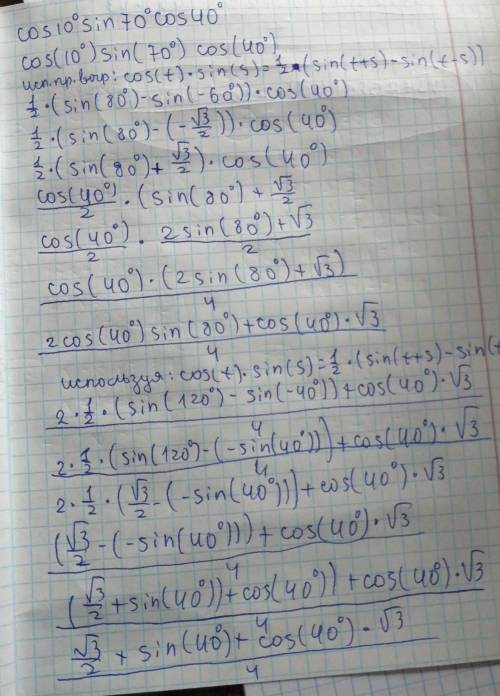 cos10°sin70°cos40°
cos(10°)sin(70°) cos(40°)
исп.пр.выр: cos(t)·sin(s)=1/2·(sin(t+s)-sin(t-s))
1/2·(sin(80°)-sin(-60°))·cos(40°)
1/2·(sin(80°)-(-√3/2))·cos(40°)
1/2·(sin(80°)+√3/2)·cos(40°)
cos(40°)/2·(sin(80°)+√3/2
cos(40°)/2·2sin(80°)+√3/2
cos(40°)·(2sin(80°)+√3)/4
2cos(40°)sin(80°)+cos(40°)·√3/4
используя: cos(t)·sin(s)=1/2·(sin(t+s)-sin(t
2·1/2·(sin(120°)-sin(-40°))+cos(40°)·√3/4
2·1/2·(sin(120°)-(-sin(40°)))+cos(40°)·√3/4
2·1/2·(√3/2-(-sin(40°)))+cos(40°)·√3
(√3/2-(-sin(40°)))+cos(40°)·√3/4
(√3/2+sin(40°))+cos(40°))+cos(40°)·√3/4
√3/2+sin(40°)+cos(40°)·√3/4